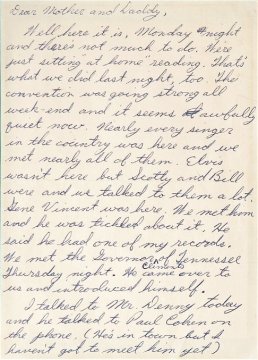 Dear Mother and Daddy,
Well here it is, Monday night
and theres not much to do. Were
just sitting at home reading. That's
what we did last night, too. The
convention was going strong all
week-end and it seems awfully
quiet now. Nearly every singer
in the country was here and we
met nearly all of them. Elvis
wasn't here but Scotty and Bill
were and we talked to them a lot.
Gene Vincent was here. We met him
and he was tickled about it. He
said he had one of my records.
We met the Governor of Tennessee
Clements
Thursday night. He came over to
us and introduced himself.
I talked to Mr. Denny today
and he talked to Paul Cohen on
the phone. (He's in town but I
haven't got to meet him yet)